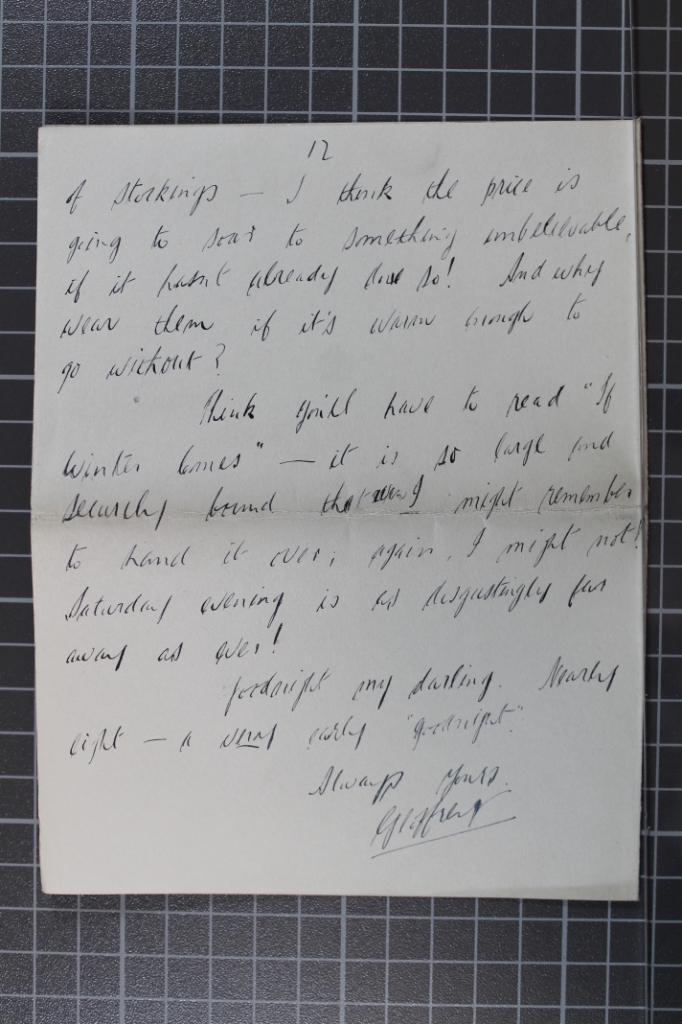 12
of stockings — I think the price is
going to soar to something unbelievable,
if it hasn't already done so! And why
wear them if it's warm enough to
go without?
Think you'll have to read "If
Winter Comes" — it is so large and
securely bound that even I might remember
to hand it over; again, I might not!
Saturday evening is as disgustingly far
away as ever!
Goodnight my darling. Nearly
eight — a very early "goodnight".
Always Yours.
Geoffrey